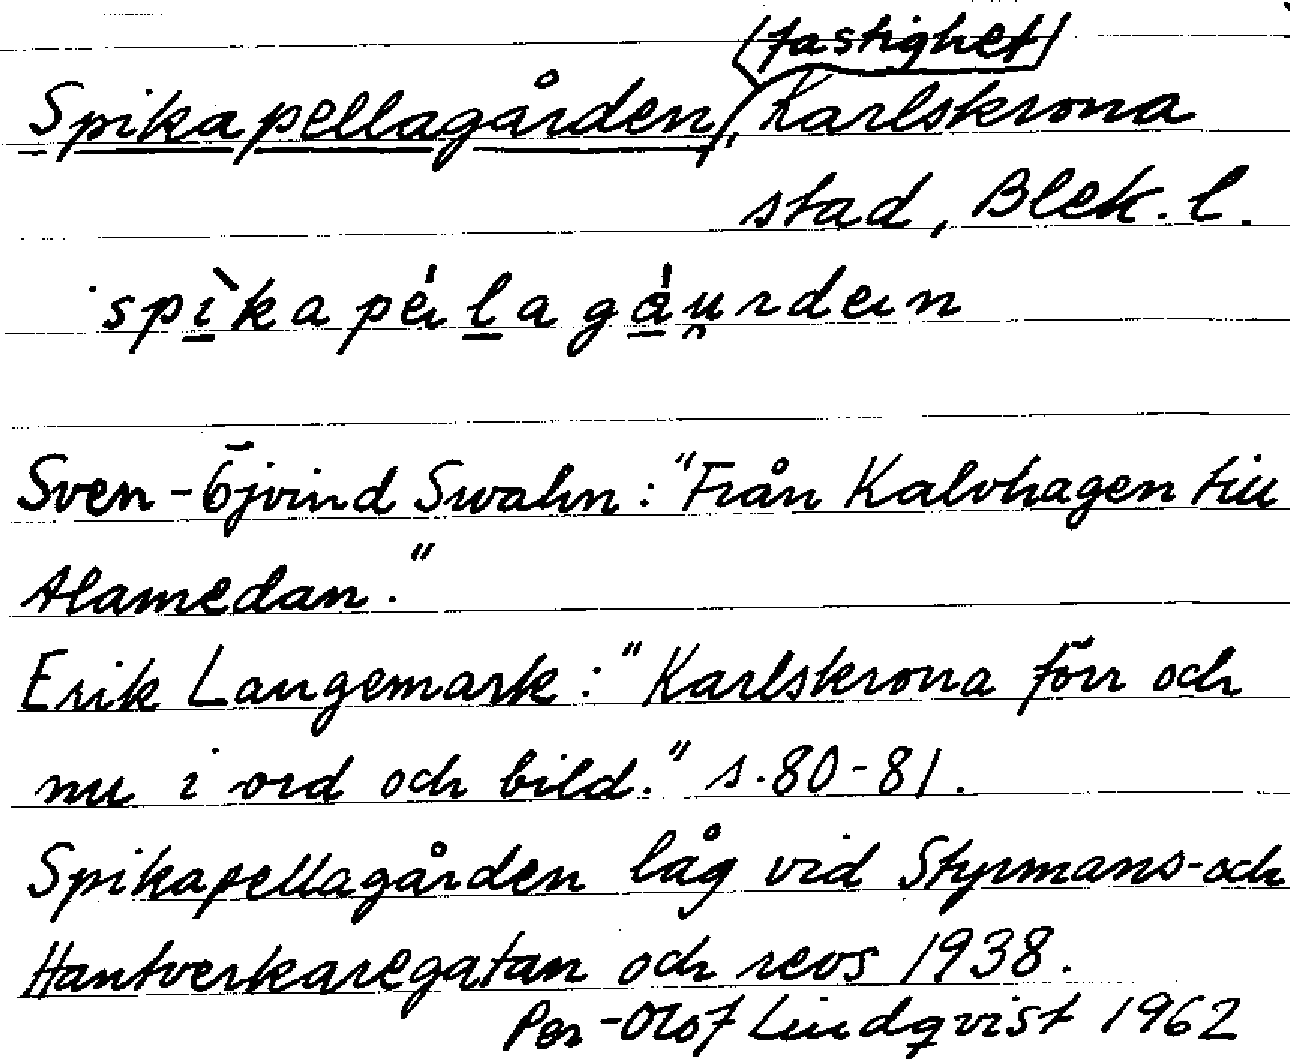 (fastighet)
Spikapellagården, Karlskrona
stad, Blek. l.
Sven-Öjvind Swahn: "Från Kalvhagen till
Alamedan."
Erik Langemark: "Karlskrona förr och
nu i ord och bild." s. 80-81.
Spikapellagården låg vid Styrmans- och
Hantverkaregatan och revs 1938.
Per-Olof Lindqvist 1962